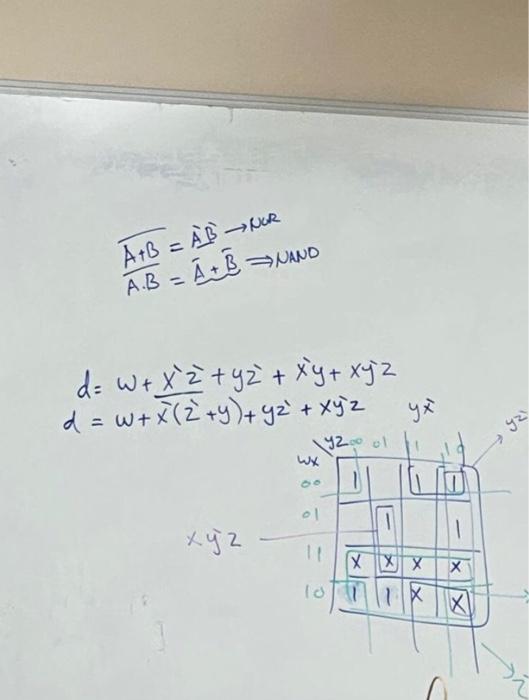 A+B = ÀB̀ → NOR
A.B = Ā + B̄ ⇒ NAND
d = w + x`z` + yz` + x`y + xy`z
d = w + x`(z` + y) + yz` + xy`z
yx̄
yz̄
yz 00 01 11 10
wx
00 1 1 1
01 1 1
xy`z
11 x x x x
10 1 1 x x